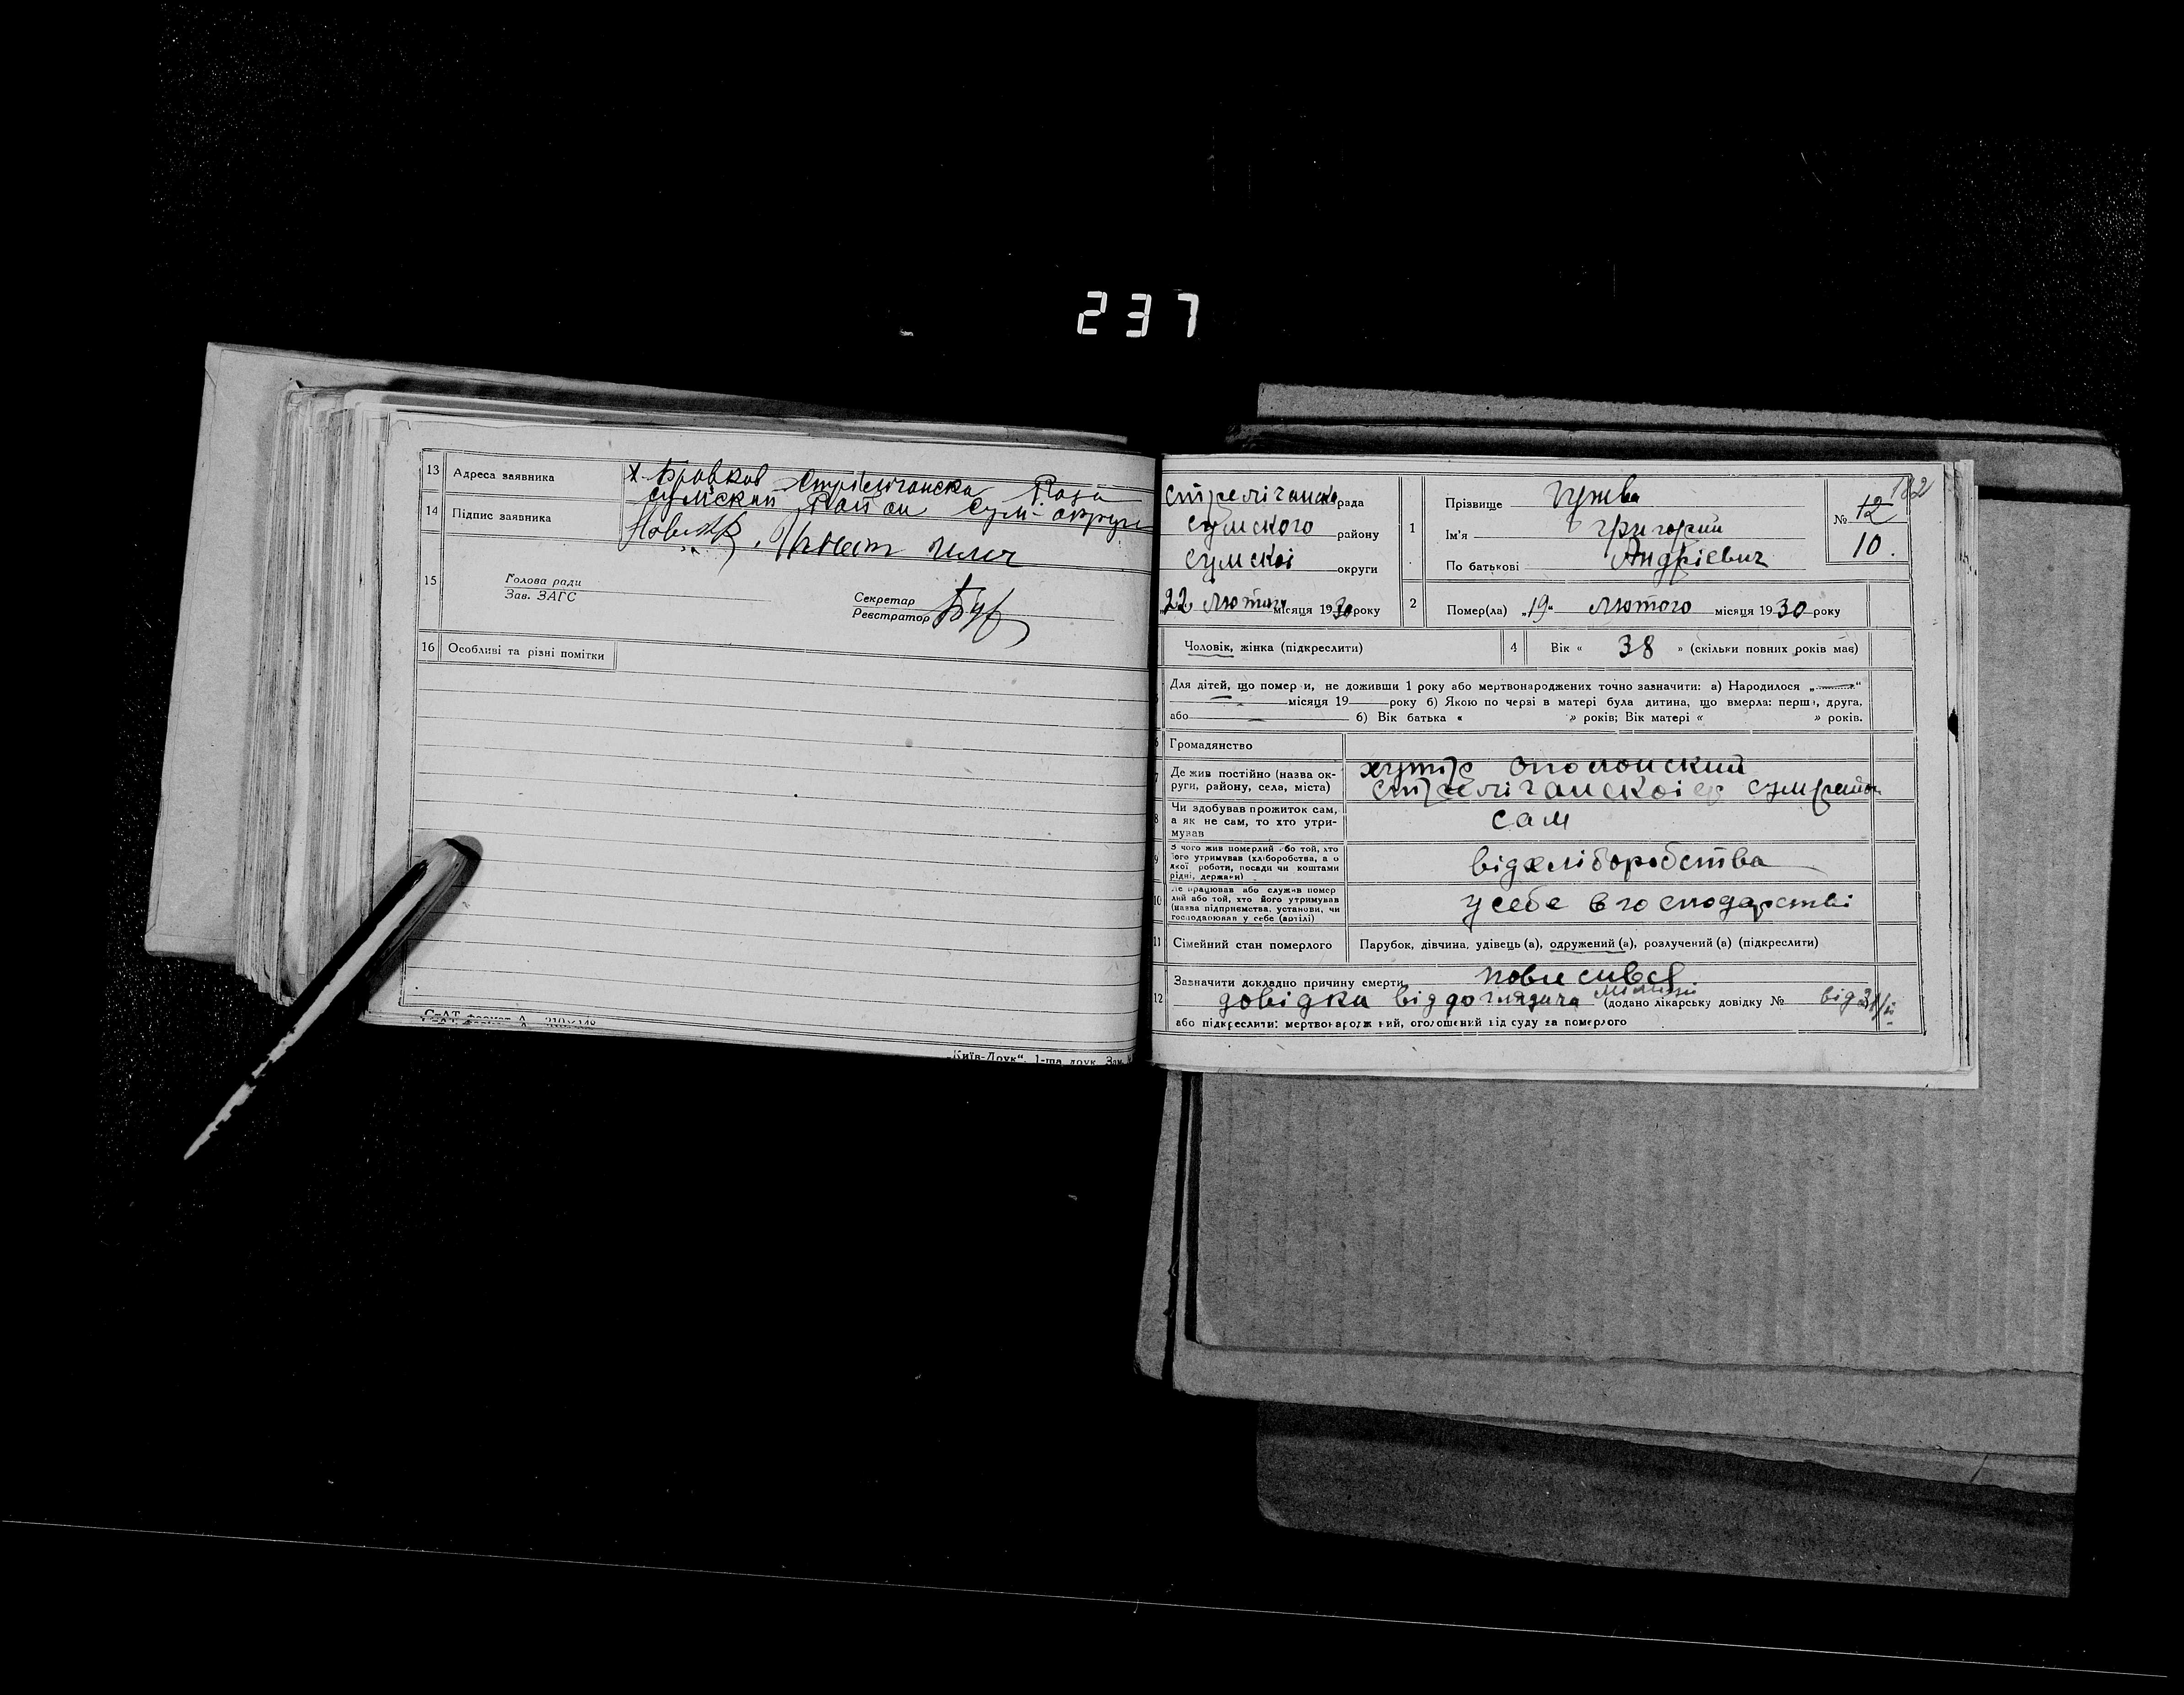 237
13 Адреса заявника
х. Бровков Стріліганска Рада
сумский Район Сум. округи
14 Підпис заявника
15 Голова ради
Зав. ЗАГС
Секретар
Реєстратор
16 Особливі та різні помітки
„Київ-Друк“, 1-ша друк. Зам.
182
стреліганска рада
сумского району
сумскої округи
„22„ лютого місяця 1930 року
1 Прізвище Гужва
Ім'я Григорий
По батькові Андрієвич
№ 12
10.
2 Помер(ла) „19“ лютого місяця 1930 року
Чоловік, жінка (підкреслити)
4 Вік « 38 » (скільки повних років має)
Для дітей, що помер и, не доживши 1 року або мертвонароджених точно зазначити: а) Народилося „ “
місяця 19 року б) Якою по черзі в матері була дитина, що вмерла: перша, друга,
або б) Вік батька « » років; Вік матері « » років.
Громадянство
7 Де жив постійно (назва ок-
руги, району, села, міста)
хутір
стреліганскої ср сумрайон
8 Чи здобував прожиток сам,
а як не сам, то хто утри-
мував
сам
9 З чого жив померлий або той, хто
його утримував (хліборобства, а о
якої роботи, посади чи коштами
рідні, держави)
від хліборобства
10 Де працював або служив помер
лий або той, хто його утримував
(назва підприємства, установи, чи
господарював у себе (артілі)
у себе в господарстві
11 Сімейний стан померлого
Парубок, дівчина, удівець (а), одружений (а), розлучений (а) (підкреслити)
12 Зазначити докладно причину смерти повисився
довідка від доглядача міліції (додано лікарську довідку № від
або підкреслити: мертвонародж ний, оголошений від суду за померлого